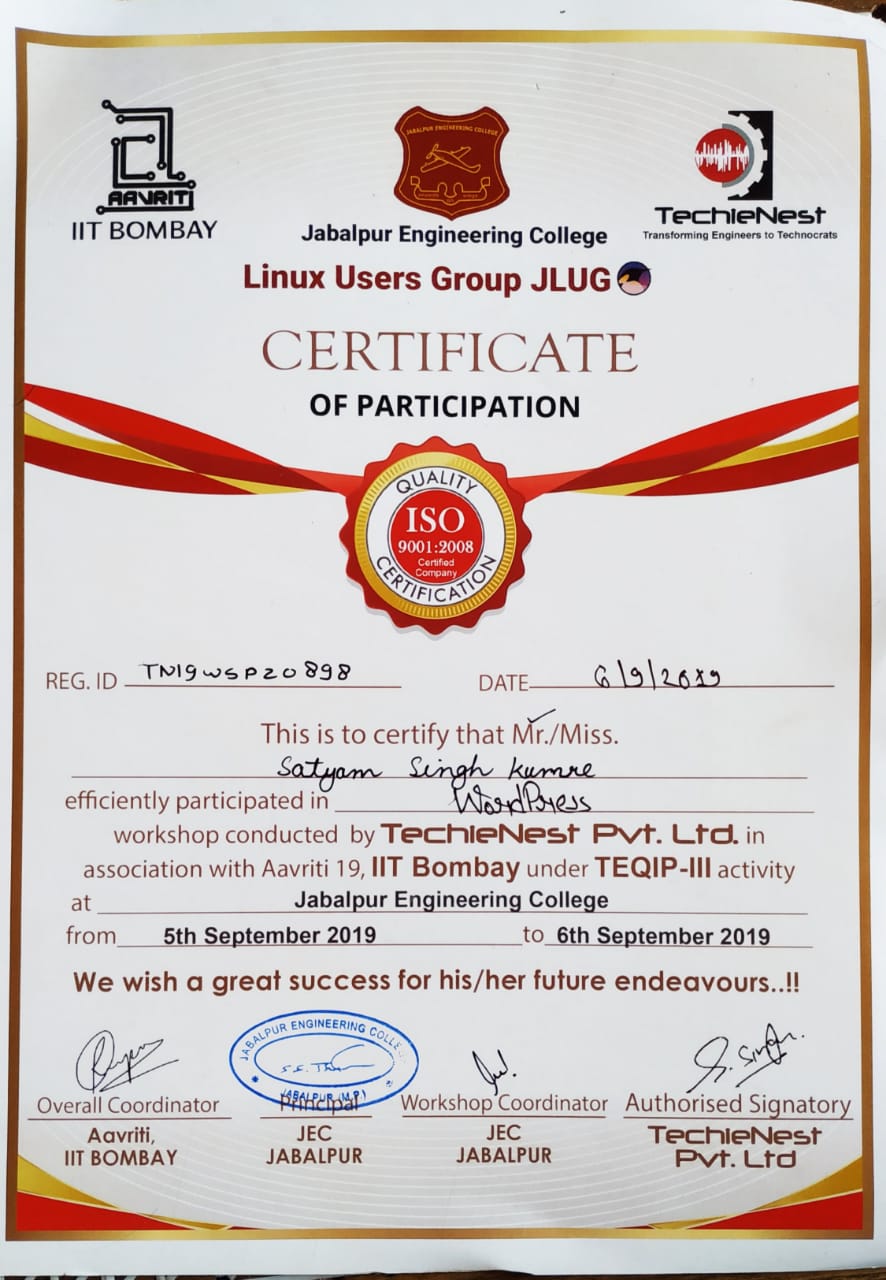 AAVRITI
IIT BOMBAY
JABALPUR ENGINEERING COLLEGE
Jabalpur Engineering College
TechieNest
Transforming Engineers to Technocrats
Linux Users Group JLUG
CERTIFICATE
OF PARTICIPATION
QUALITY
ISO
9001:2008
Certified
Company
CERTIFICATION
REG. ID TN19WSP20898 DATE 6/9/2019
This is to certify that Mr./Miss.
Satyam Singh Kumre
efficiently participated in WordPress
workshop conducted by TechieNest Pvt. Ltd. in
association with Aavriti 19, IIT Bombay under TEQIP-III activity
at Jabalpur Engineering College
from 5th September 2019 to 6th September 2019
We wish a great success for his/her future endeavours..!!
JABALPUR ENGINEERING COLLEGE
JABALPUR (M.P.)
S. Singh
Overall Coordinator Principal Workshop Coordinator Authorised Signatory
Aavriti, JEC JEC TechieNest
IIT BOMBAY JABALPUR JABALPUR Pvt. Ltd